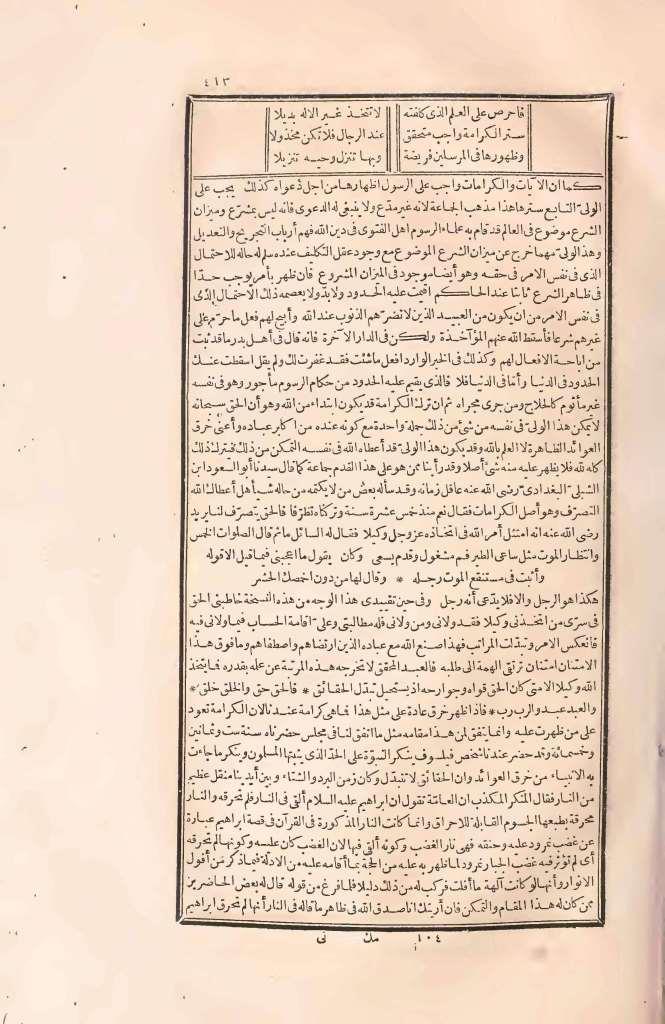 ٤١٣
فاحرص على العلم الذى كلفته لا تتخذ غير الاله بديلا
ستر الكرامة واجب متحقق عند الرجال فلا تكن مخذولا
وظهورها فى المرسلين فريضة وبها تنزل وحيه تنزيلا
كما ان الآيات والكرامات واجب على الرسول اظهارها من اجل دعواه كذلك يجب على
الولى التابع سترها هذا مذهب الجماعة لانه غير مدع ولا ينبغى له الدعوى فانه ليس بمشرع وميزان
الشرع موضوع فى العالم قد قام به علماء الرسوم اهل الفتوى فى دين الله فهم أرباب التجريح والتعديل
وهذا الولى مهما خرج عن ميزان الشرع الموضوع مع وجود عقل التكليف عنده سلم له حاله للاحتمال
الذى فى نفس الامر فى حقه وهو أيضا موجود فى الميزان المشروع فان ظهر بأمر يوجب حدا
فى ظاهر الشرع ثابتا عند الحاكم اقيمت عليه الحدود ولا بد ولا يعصمه ذلك الاحتمال الذى
فى نفس الامر من ان يكون من العبيد الذين لا تضرهم الذنوب عند الله وأبيح لهم فعل ما حرم على
غيرهم شرعا فأسقط الله عنهم المؤاخذة ولكن فى الدار الآخرة فانه قال فى أهل بدر ما قد ثبت
من اباحة الافعال لهم وكذلك فى الخبر الوارد افعل ما شئت فقد غفرت لك ولم يقل اسقطت عنك
الحدود فى الدنيا وأما فى الدنيا فلا فالذى يقيم عليه الحدود من حكام الرسوم مأجور وهو فى نفسه
غير مأثوم كالحلاج ومن جرى مجراه ثم ان ترك الكرامة قد يكون ابتداء من الله وهو أن الحق سبحانه
لا يمكن هذا الولى فى نفسه من شئ من ذلك جملة واحدة مع كونه عنده من اكابر عباده وأعنى خرق
العوائد الظاهرة لا العلم بالله وقد يكون هذا الولى قد أعطاه الله فى نفسه التمكن من ذلك فيترك ذلك
كله لله فلا يظهر عليه منه شئ أصلا وقد رأينا ممن هو على هذا القدم جماعة كما قال سيدنا أبو السعود ابن
الشبلى البغدادى رضى الله عنه عاقل زمانه وقد سأله بعض من لا يكتمه من حاله شيأ هل أعطاك الله
التصرف وهو أصل الكرامات فقال نعم منذ خمس عشرة سنة وتركناه تظرفا فالحق يتصرف لنا يريد
رضى الله عنه انه امتثل أمر الله فى اتخاذه عز وجل وكيلا فقال له السائل ما ثم قال الصلوات الخمس
وانتظار الموت مثل ساعى الطير فم مشغول وقدم يسعى وكان يقول ما اعجبنى فيما قيل الا قوله
وأثبت فى مستنقع الموت رجله * وقال لها من دون اخمصك الحشر
هكذا هو الرجل والا فلا يدعى أنه رجل وفى حين تقييدى هذا الوجه من هذه النسخة خاطبنى الحق
فى سرى من اتخذنى وكيلا فقد ولانى ومن ولانى فله مطالبتى وعلى اقامة الحساب فيما ولانى فيه
فانعكس الامر وتبدلت المراتب فهذا صنع الله مع عباده الذين ارتضاهم واصطفاهم وما فوق هذا
الامتنان امتنان ترتقى الهمة الى طلبه فالعبد المحقق لا تخرجه هذه المرتبة عن علمه بقدره فما يتخذ
الله وكيلا الا متى كان الحق قواه وجوارحه اذ يستحيل تبدل الحقائق * فالحق حق والخلق خلق *
والعبد عبد والرب رب * فاذا ظهر خرق عادة على مثل هذا فما هى كرامة عندنا لان الكرامة تعود
على من ظهرت عليه وانما يتفق لمن هذا مقامه مثل ما اتفق لنا فى مجلس حضرناه سنة ست وثمانين
وخمسمائة وقد حضر عندنا شخص فيلسوف ينكر النبوة على الحد الذى يثبتها المسلمون وينكر ما جاءت
به الانبياء من خرق العوائد وان الحقائق لا تتبدل وكان زمن البرد والشتاء وبين أيدينا منقل عظيم
من النار فقال المنكر المكذب ان العامة تقول ان ابراهيم عليه السلام ألقى فى النار فلم تحرقه والنار
محرقة بطبعها الجسوم القابلة للاحراق وانما كانت النار المذكورة فى القرآن فى قصة ابراهيم عبارة
عن غضب نمرود عليه وحنقه فهى نار الغضب وكونه ألقى فيها لان الغضب كان عليه وكونها لم تحرقه
أى لم تؤثر فيه غضب الجبار نمرود لما ظهر به عليه من الحجة بما أقامه عليه من الادلة فيما ذكر من أفول
الانوار وأنها لو كانت آلهة ما أفلت فركب له من ذلك دليلا فلما فرغ من قوله قال له بعض الحاضرين
ممن كان له هذا المقام والتمكن فان أريتك انا صدق الله فى ظاهر ما قاله فى النار أنها لم تحرق ابراهيم
١٠٤ مك نى